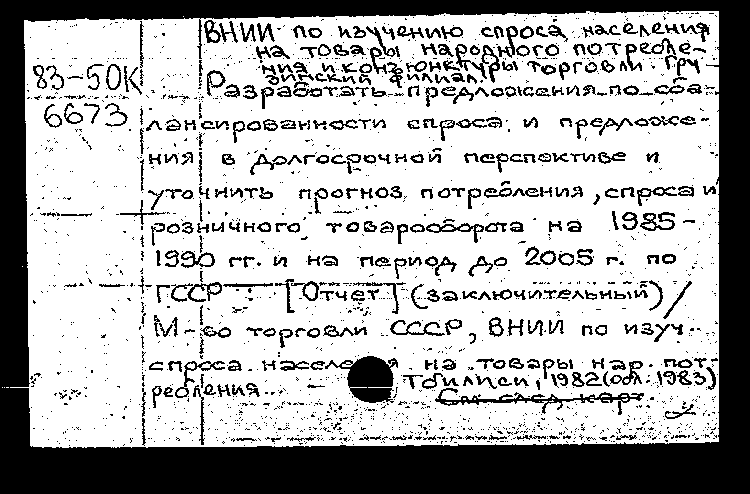 ВНИИ по изучению спроса населения
на товары народного потребле-
ния и конъюнктуры торговли. Гру-
зинский филиал.
83-50К
Разработать предложения по сба-
6673
лансированности спроса и предложе-
ния в долгосрочной перспективе и
уточнить прогноз потребления, спроса и
розничного товарооборота на 1985-
1990 гг. и на период до 2005 г. по
ГССР : [Отчет] (заключительный) /
М-во торговли СССР, ВНИИ по изуч.
спроса населения на товары нар. пот-
ребления.. Тбилиси, 1982 (обл. 1983)
См след карт.